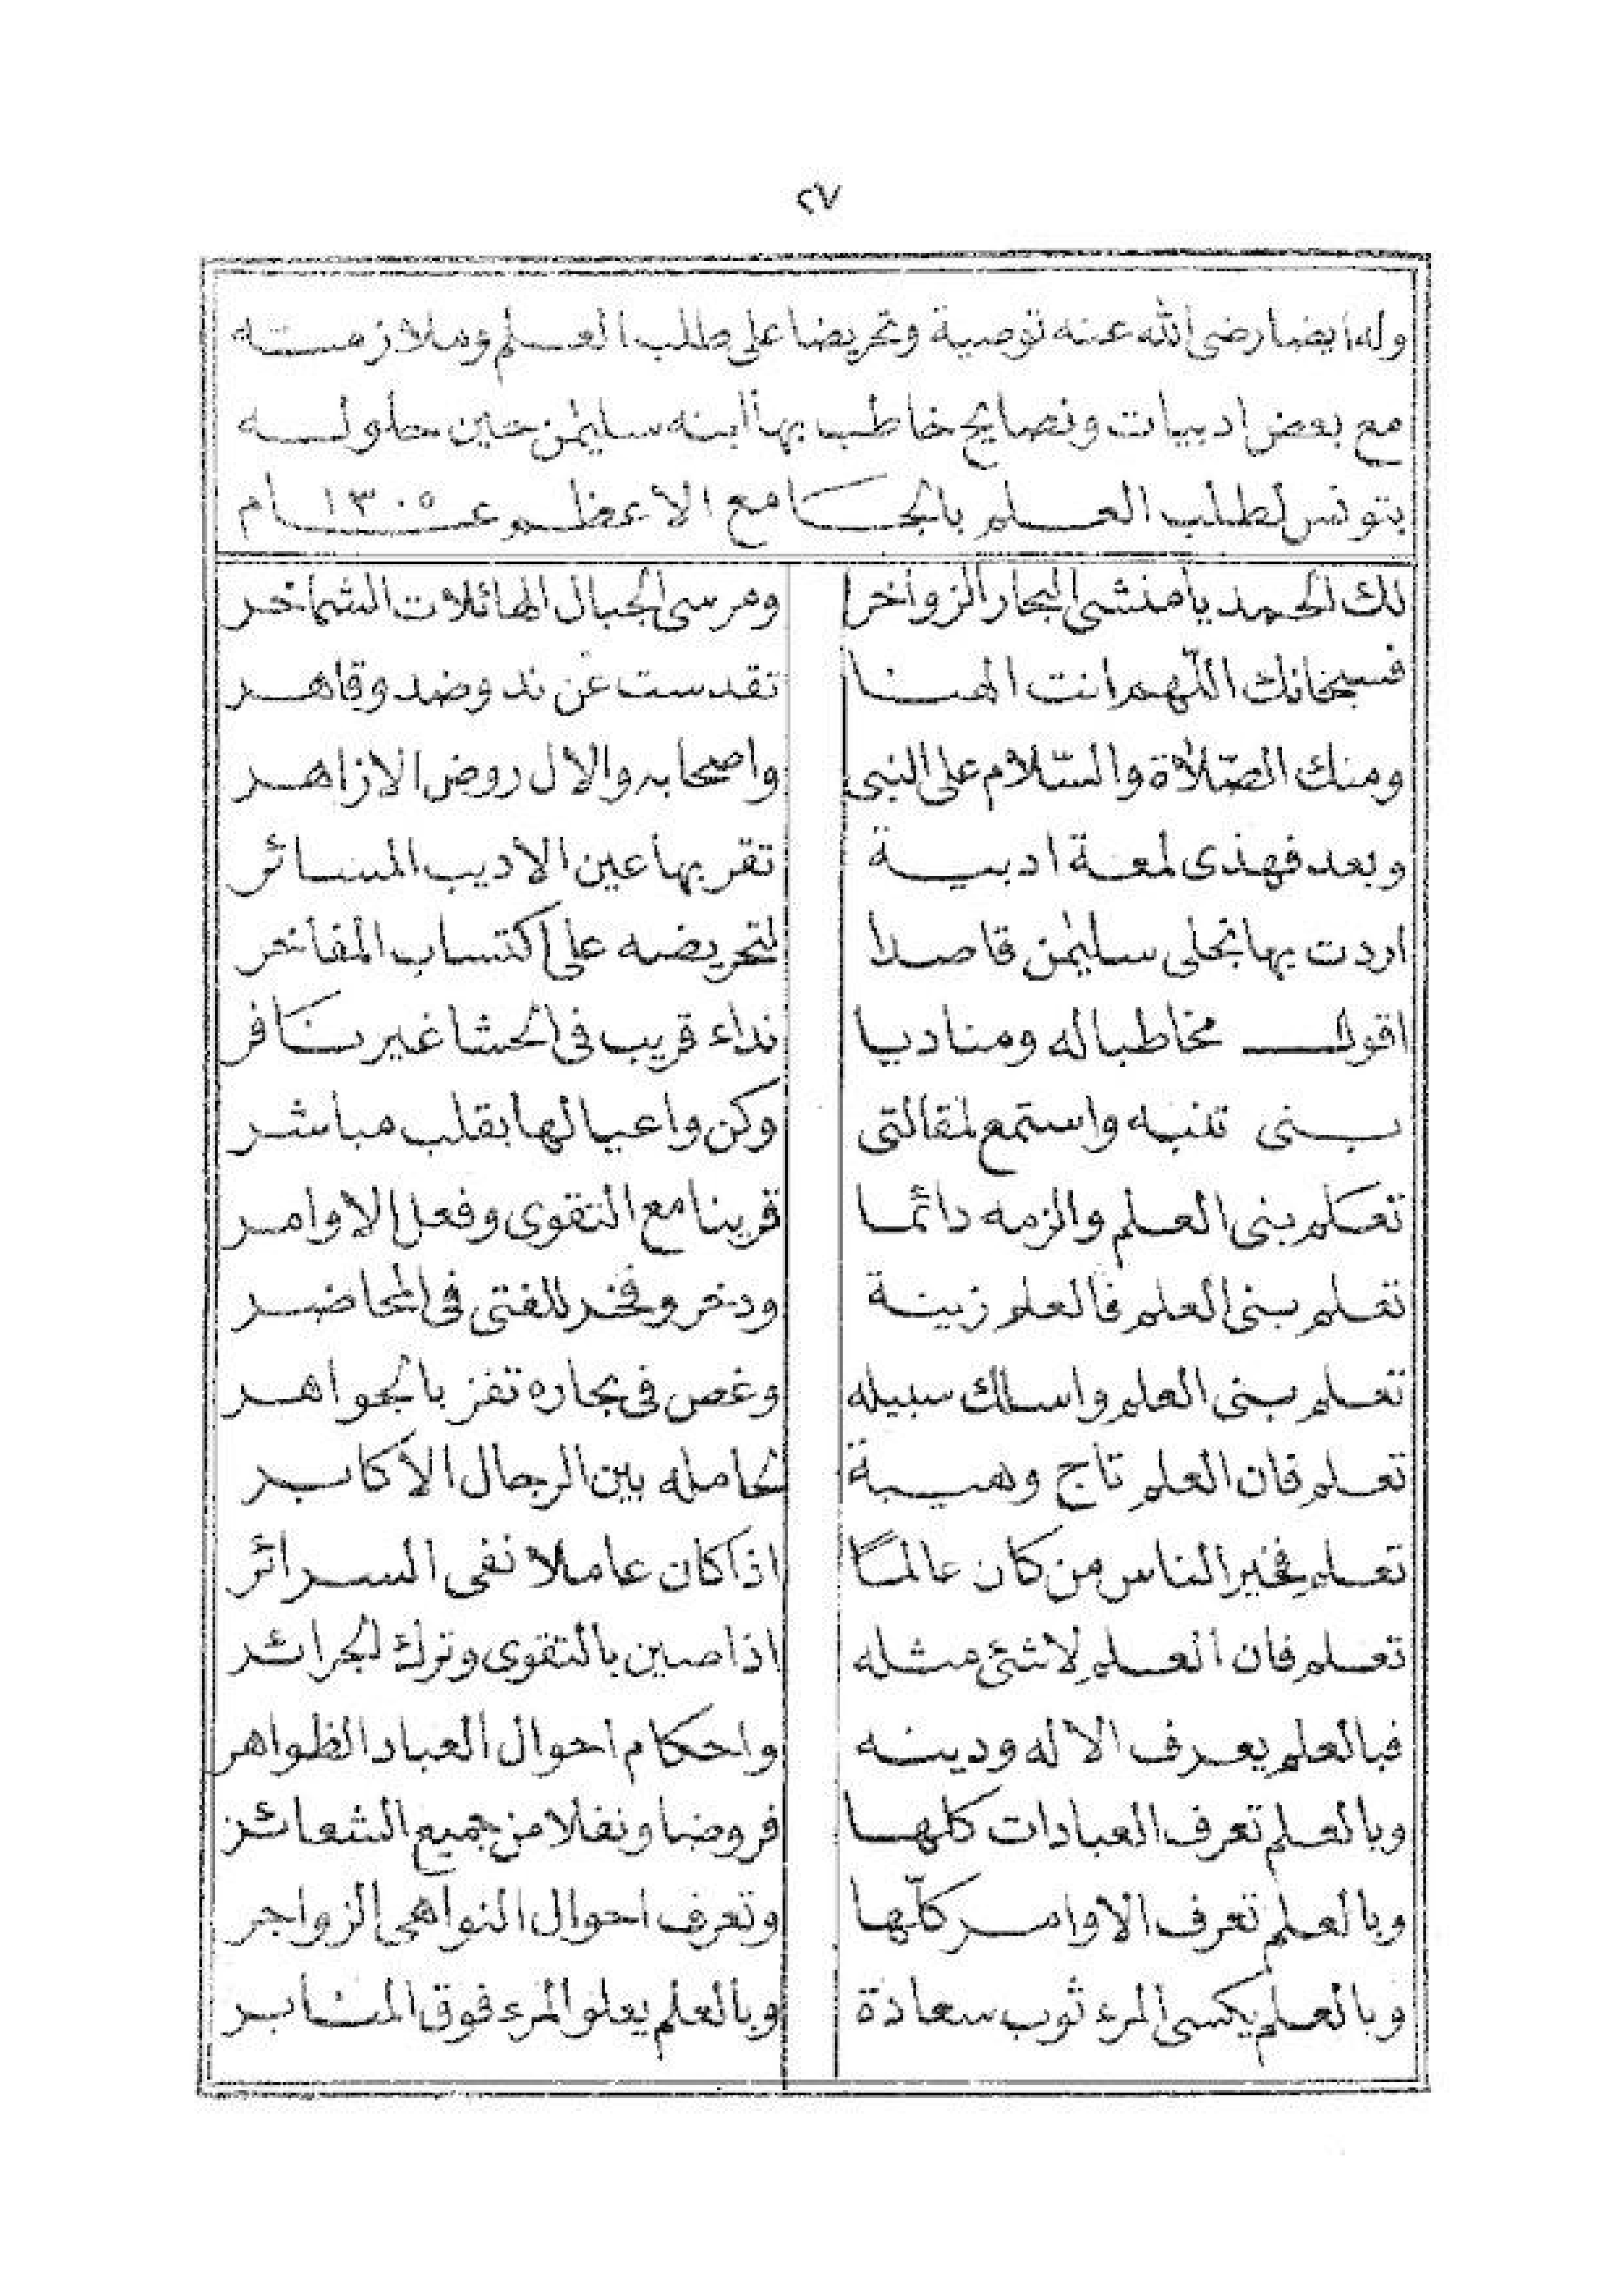 ٢٧
وله ايضا رضى الله عنه توصية وتحريضا على طلب العلم وملازمته
مع بعض ادبيات ونصايح خاطب بها ابنه سليمٰن حين حلوله
بتونس لطلب العلم بالجامع الاعظم عام ١٣٠٥
لك الحمد يا منشى البحار الزواخرا ومرسى الجبال الهائلات الشماخر
فسبحانك اللّهم انت الهنا تقدست عن ند وضد وقاهر
ومنك الصّلاة والسّلام على النبى واصحابه والال روض الازاهر
وبعد فهذى لمعة ادبية تقر بها عين الاديب المسائر
اردت بها نجلى سليمٰن قاصدا لتحريضه على اكتساب المفاخر
اقول مخاطبا له ومناديا نداء قريب فى الحشا غير نافر
بنى تنبه واستمع لمقالتى وكن واعيا لها بقلب مباشر
تعلم بنى العلم والزمه دائما قرينا مع التقوى وفعل الاوامر
تعلم بنى العلم فالعلم زينة ودخر وفخر للفتى فى المحاضر
تعلم بنى العلم واسلك سبيله وغص فى بحاره تفز بالجواهر
تعلم فان العلم تاج وهيبة لحامله بين الرجال الاكابر
تعلم فخير الناس من كان عالمًا اذا كان عاملا نفى السرائر
تعلم فان العلم لاشئ مثله اذا صين بالتقوى وترك الجرائر
فبالعلم يعرف الاله ودينه واحكام احوال العباد الظواهر
وبالعلم تعرف العبادات كلها فروضا ونفلا من جميع الشعائر
وبالعلم تعرف الاوامر كلّها وتعرف احوال النواهى الزواجر
وبالعلم يكسى المرء ثوب سعادة وبالعلم يعلو المرء فوق المنابر